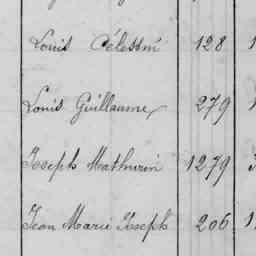 Louis Célestin 128
Louis Guillaume 279
Joseph Mathurin 1279
Jean Marie Joseph 206